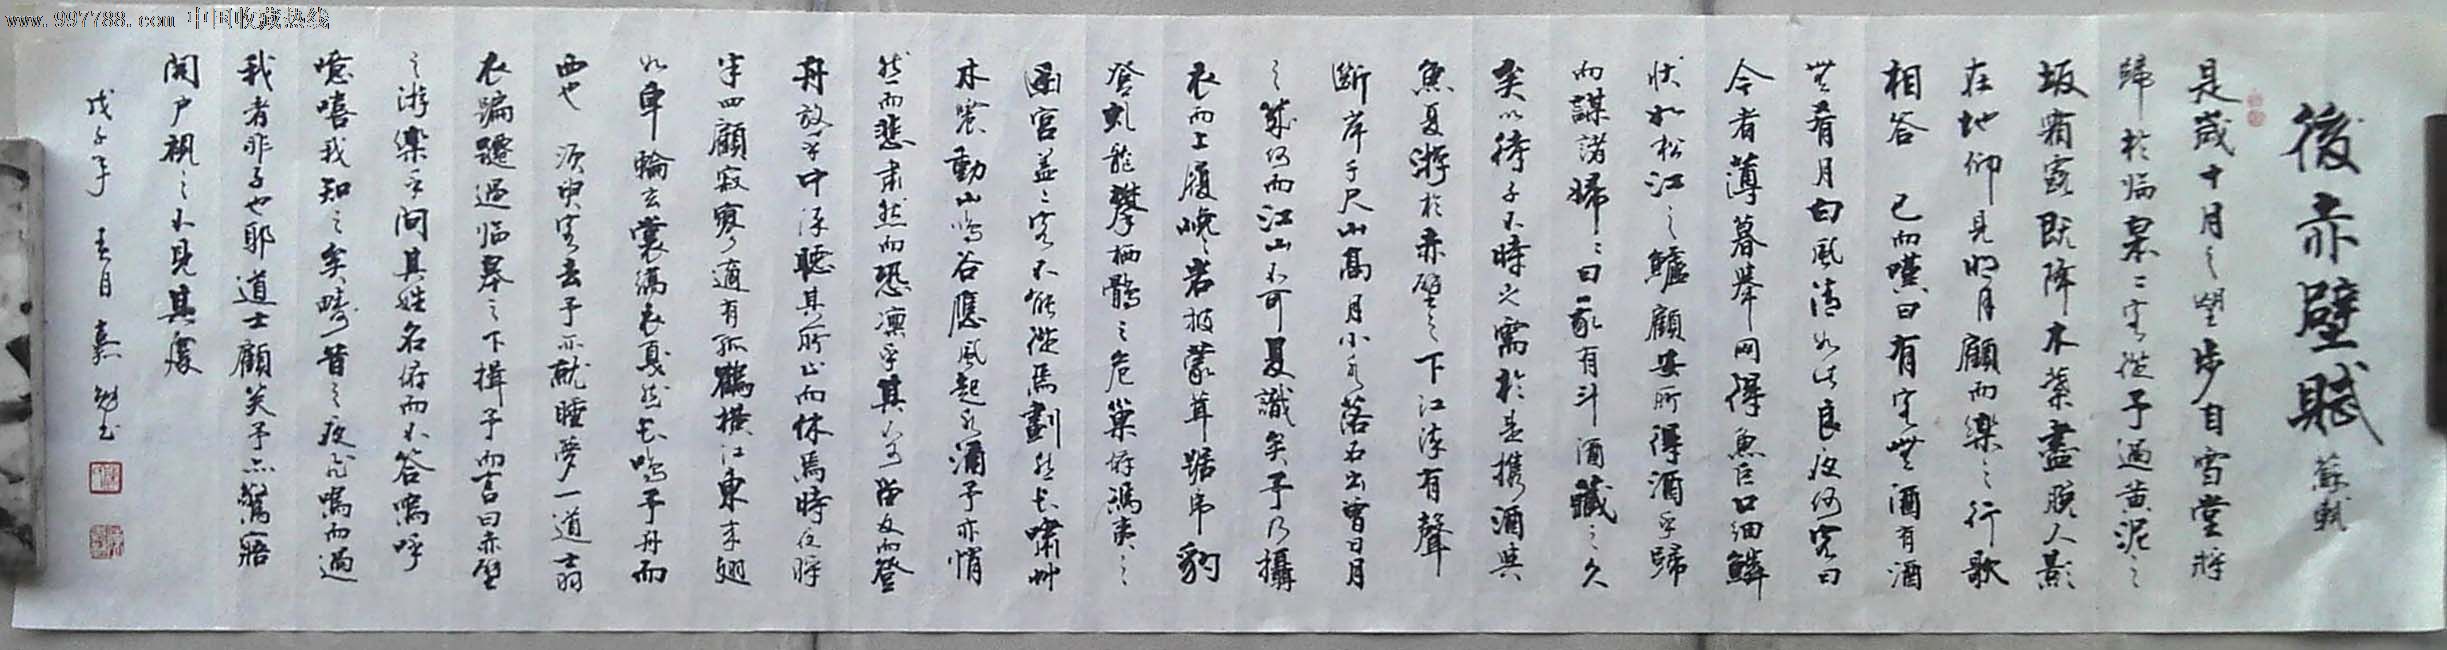 www.997788.com 中国收藏热线
後赤壁賦 蘇軾
是歲十月之望步自雪堂將
歸於临皋二客從予過黄泥之
坂霜露既降木葉盡脱人影
在地仰見明月顧而樂之行歌
相答已而嘆曰有客無酒有酒
無肴月白風清如此良夜何客曰
今者薄暮舉网得魚巨口细鱗
状如松江之鱸顧安所得酒乎歸
而謀諸婦婦曰我有斗酒藏之久
矣以待子不時之需於是携酒與
魚复游於赤壁之下江流有聲
断岸千尺山高月小水落石出曾日月
之幾何而江山不可复識矣予乃攝
衣而上履巉巉岩披蒙茸踞虎豹
登虬龍攀栖鶻之危巢俯馮夷之
幽宫蓋二客不能從焉劃然长嘯艸
木震動山鸣谷應風起水涌予亦悄
然而悲肃然而恐凛乎其不可留反而登
舟放乎中流聽其所止而休焉時夜將
半四顧寂寥適有孤鶴横江東来翅
如車輪玄裳缟衣戛然长鸣予舟而
西也须臾客去予亦就睡夢一道士羽
衣蹁躚過临皋之下揖予而言曰赤壁
之游樂乎问其姓名俯而不答嗚呼
噫嘻我知之矣疇昔之夜飛鳴而過
我者非子也耶道士顧笑予亦驚寤
開户視之不見其處
戊子年